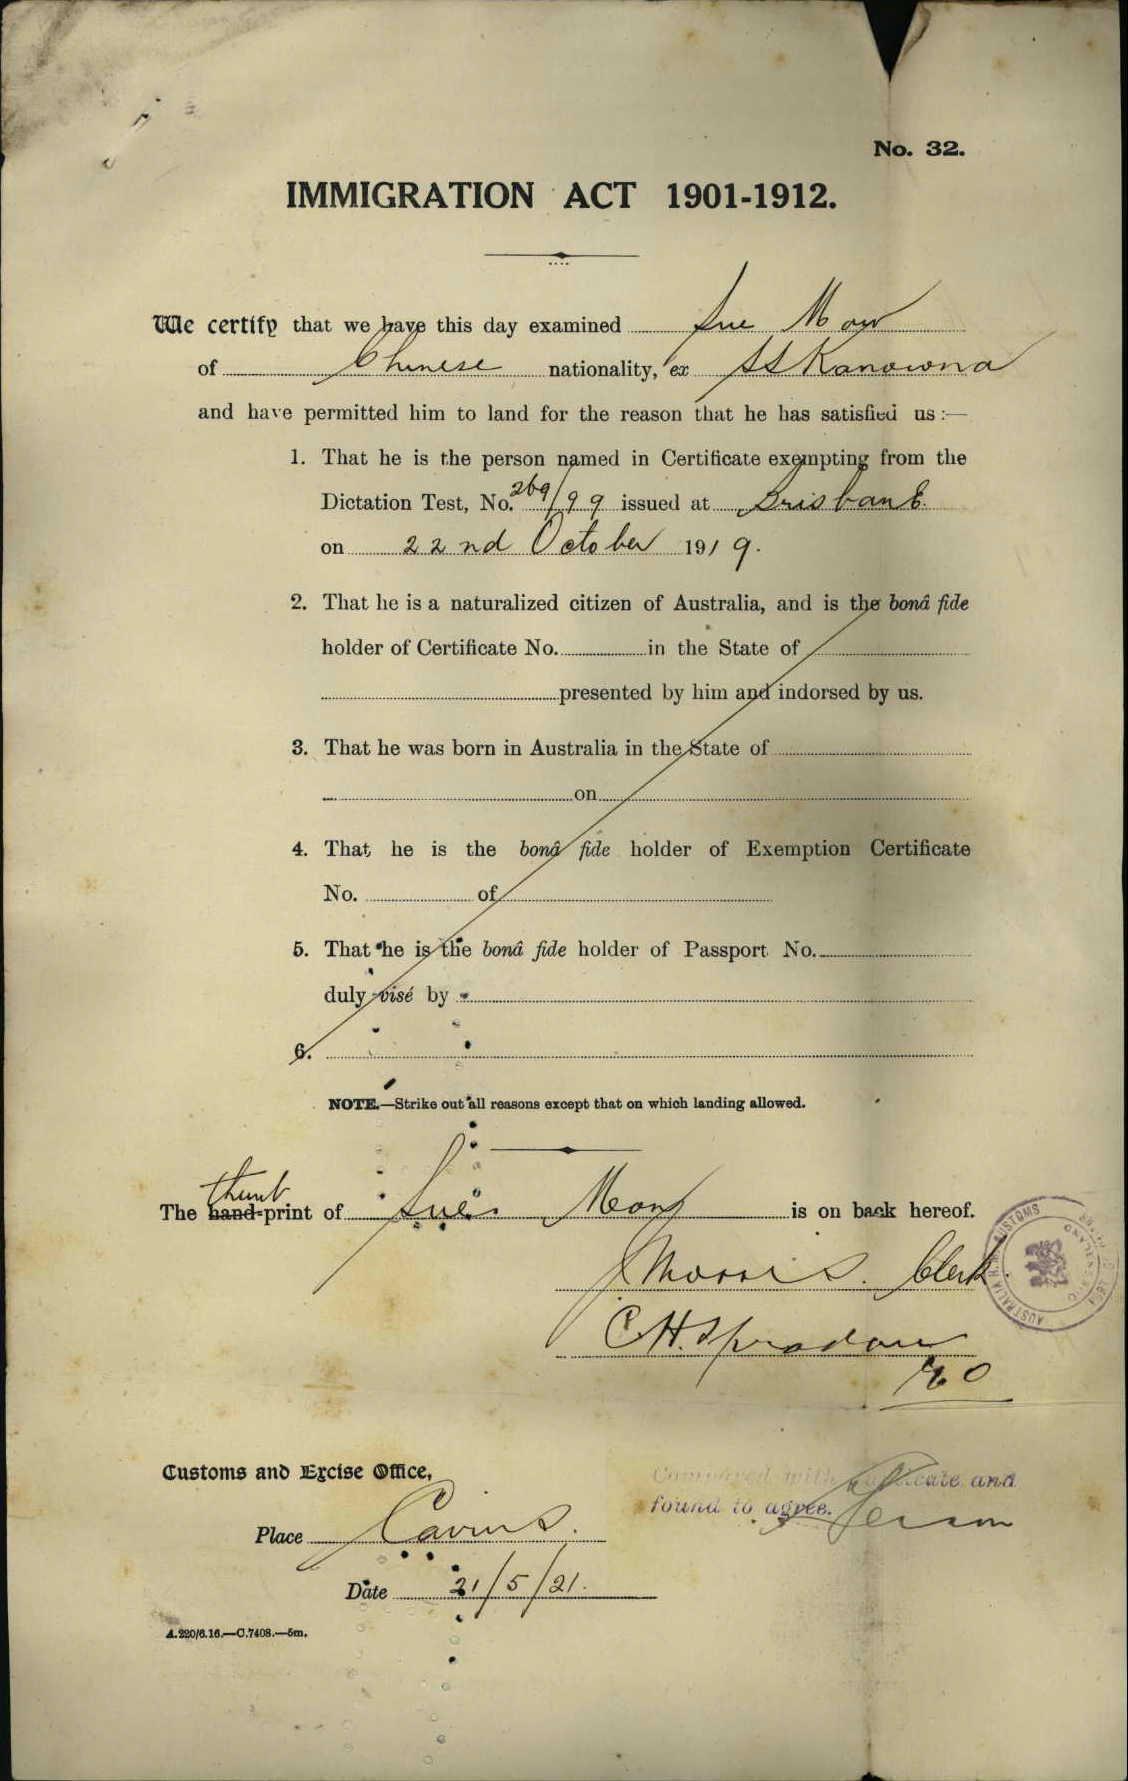 No. 32.
IMMIGRATION ACT 1901-1912.
We certify that we have this day examined Sue Mow
of Chinese nationality, ex SS Kanowna
and have permitted him to land for the reason that he has satisfied us :—
1. That he is the person named in Certificate exempting from the
Dictation Test, No. 269/99 issued at Brisbane
on 22nd October 1919.
2. That he is a naturalized citizen of Australia, and is the bonâ fide
holder of Certificate No. in the State of
presented by him and indorsed by us.
3. That he was born in Australia in the State of
on
4. That he is the bonâ fide holder of Exemption Certificate
No. of
5. That he is the bonâ fide holder of Passport No.
duly visé by
6.
NOTE.—Strike out all reasons except that on which landing allowed.
thumb
The hand-print of Sue is on back hereof.
J Morris. Clerk.
C H.
Customs and Excise Office,
Compared with and
found to agree.
Place Cairns.
Date 21/5/21.
A.220/6.16.—C.7408.—5m.
AUSTRALIA H.M. CUSTOMS